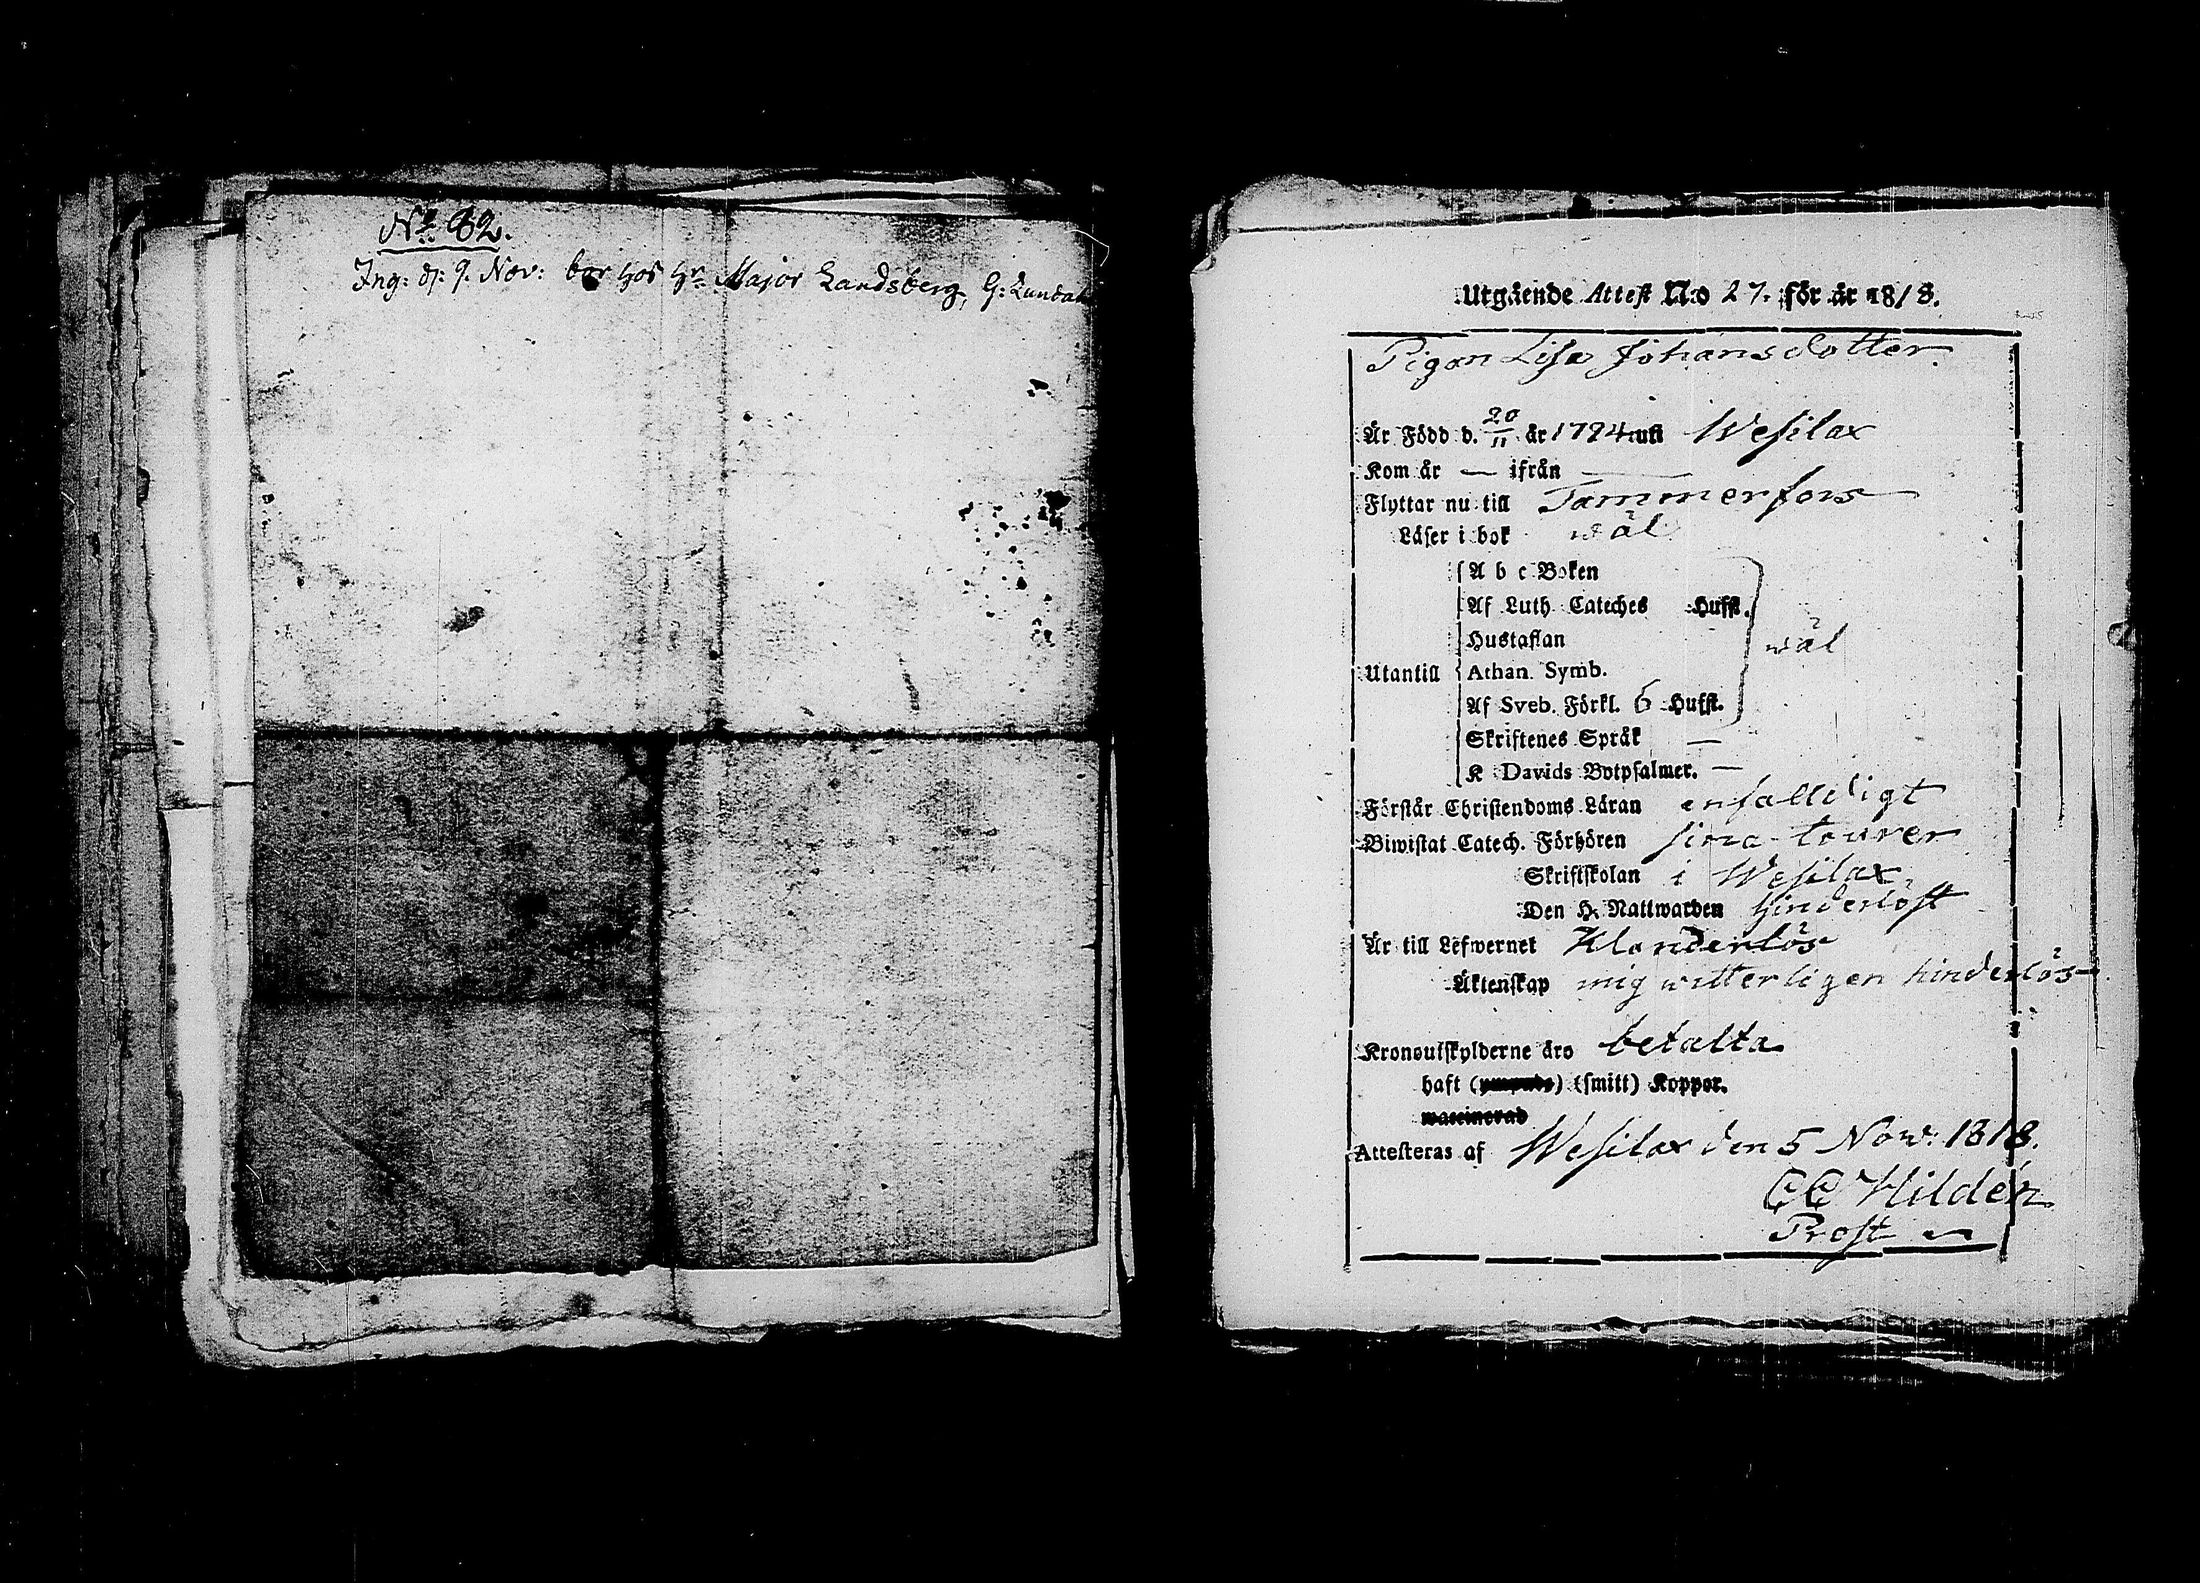 No 82.
Ing: d: 9. Nov: bor hos Hr Major Landsberg, G: Lundah
Utgående Attest N:o 27. för år 1818.
Pigan Lisa Johansdotter.
Är Född d. 20/11 år 1794 uti Wesilax
Kom år — ifrån —
Flyttar nu till Tammerfors
Läser i bok wäl
A b c Boken
Af Luth Cateches Hufst.
Hustaflan
wäl
Utantill Athan. Symb.
Af Sveb. Förkl. 6 Hufst.
Skriftenes Språk —
K Davids Botpsalmer. —
Förstår Christendoms Läran enfalldigt
Biwistat Catech. Förhören sina tourer
Skriftskolan i Wesilax
Den H. Nattwarden hinderlöst
Är till Lefwernet Klanderlös
Äktenskap mig witterligen hinderlös
Kronoutskylderne äro betalta
haft (ympade) (smitt) Koppor.
waccinerad
Attesteras af Wesilax den 5 Now: 1818.
CC Hildén
Prost